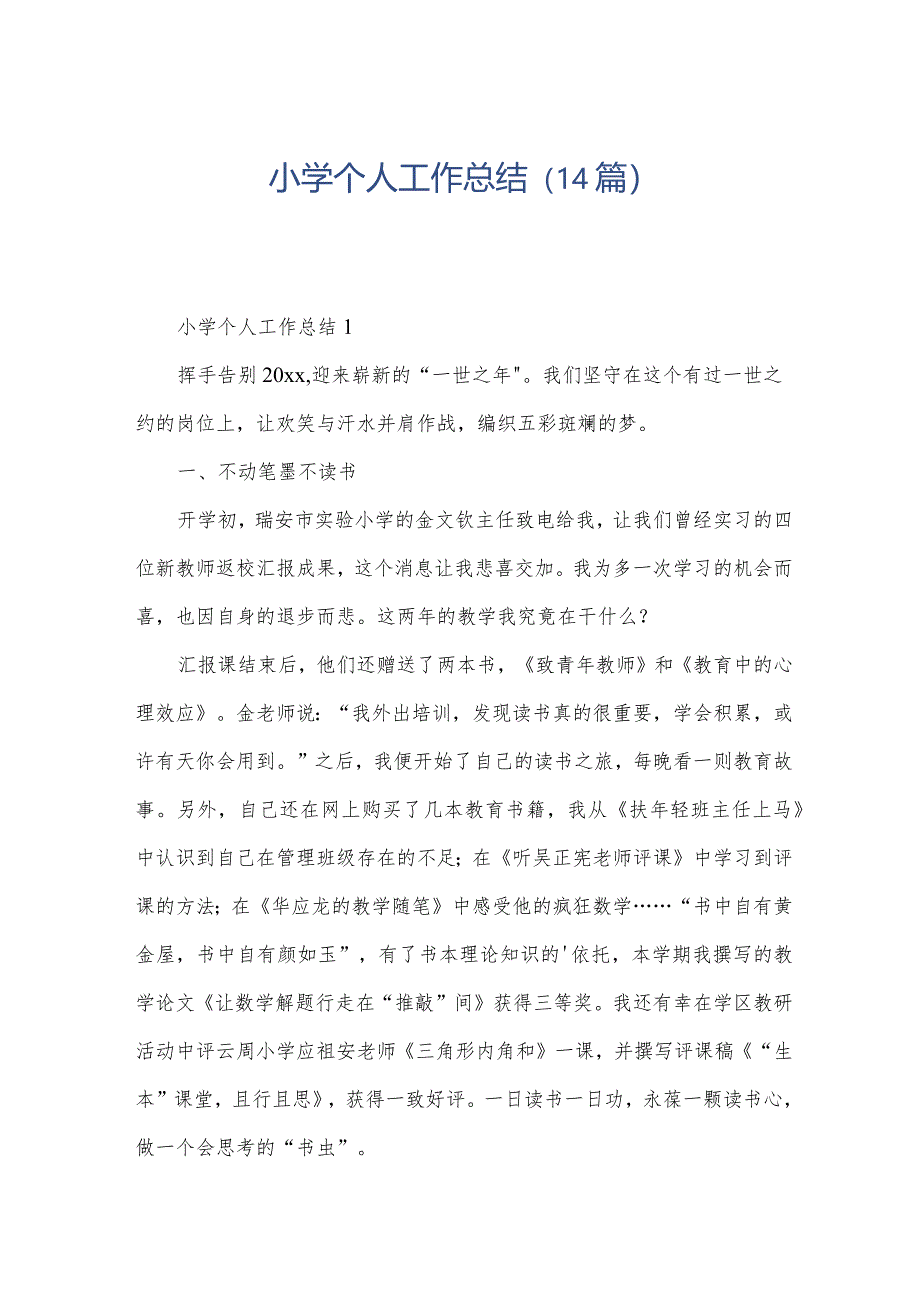 小学个人工作总结（14篇）
小学个人工作总结1
挥手告别20xx,迎来崭新的“一世之年"。我们坚守在这个有过一世之
约的岗位上，让欢笑与汗水并肩作战，编织五彩斑斓的梦。
一、不动笔墨不读书
开学初，瑞安市实验小学的金文钦主任致电给我，让我们曾经实习的四
位新教师返校汇报成果，这个消息让我悲喜交加。我为多一次学习的机会而
喜，也因自身的退步而悲。这两年的教学我究竟在干什么？
汇报课结束后，他们还赠送了两本书，《致青年教师》和《教育中的心
理效应》。金老师说：“我外出培训，发现读书真的很重要，学会积累，或
许有天你会用到。”之后，我便开始了自己的读书之旅，每晚看一则教育故
事。另外，自己还在网上购买了几本教育书籍，我从《扶年轻班主任上马》
中认识到自己在管理班级存在的不足；在《听吴正宪老师评课》中学习到评
课的方法；在《华应龙的教学随笔》中感受他的疯狂数学……“书中自有黄
金屋，书中自有颜如玉”，有了书本理论知识的'依托，本学期我撰写的教
学论文《让数学解题行走在“推敲”间》获得三等奖。我还有幸在学区教研
活动中评云周小学应祖安老师《三角形内角和》一课，并撰写评课稿《“生
本”课堂，且行且思》，获得一致好评。一日读书一日功，永葆一颗读书心，
做一个会思考的“书虫”。